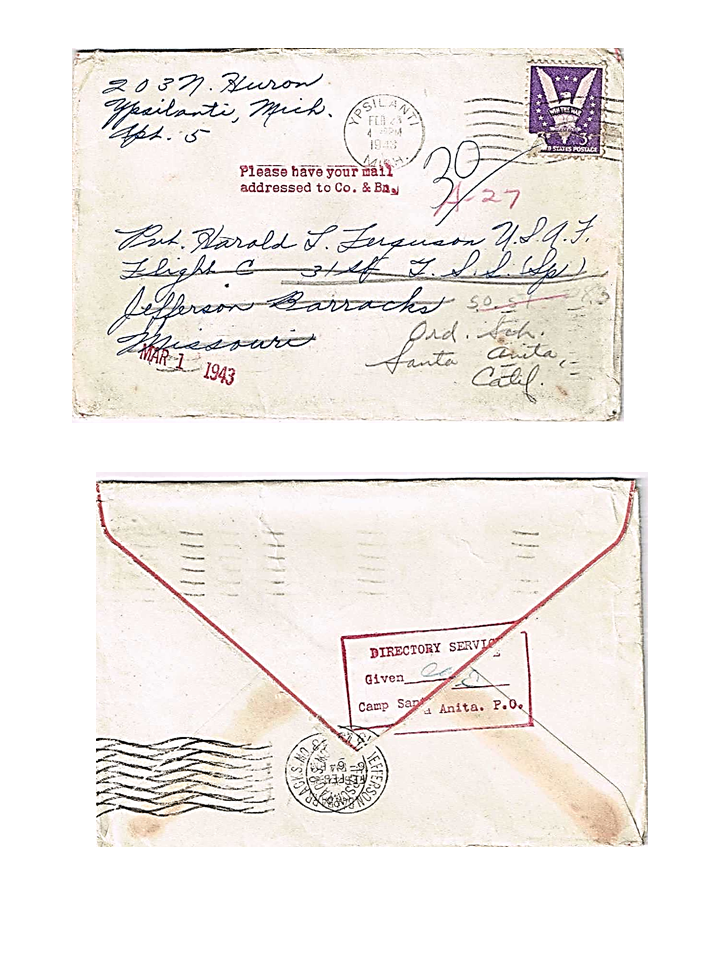 203 N. Huron
Ypsilanti, Mich.
Apt. 5
YPSILANTI
FEB 23
4 PM
1943
MICH.
WIN THE WAR
3¢
UNITED STATES POSTAGE
Please have your mail
addressed to Co. & Bn.
30
A-27
Pvt. Harold L. Ferguson U.S.A.F.
Flight C 31st T.S.S. (Sp)
Jefferson Barracks
Missouri
Ord. Sch.
Santa Anita,
Calif.
MAR 1 1943
DIRECTORY SERVICE
Given
Camp Santa Anita. P.O.
JEFFERSON BRACKS. MO.
FEB